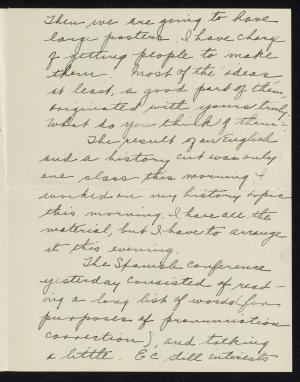 Then we are going to have
large posters. I have charge
of getting people to make
them. Most of the ideas
at least, a good part of them,
originated with yours truly.
What do you think of them?
The result of an English
and a history cut was only
one class this morning. I
worked on my history topic
this morning. I have all the
material, but I have to arrange
it this evening.
The Spanish Conference
yesterday consisted of read-
ing a long list of words (for
purposes of pronunciation
correction), and talking
a little. EC still interests